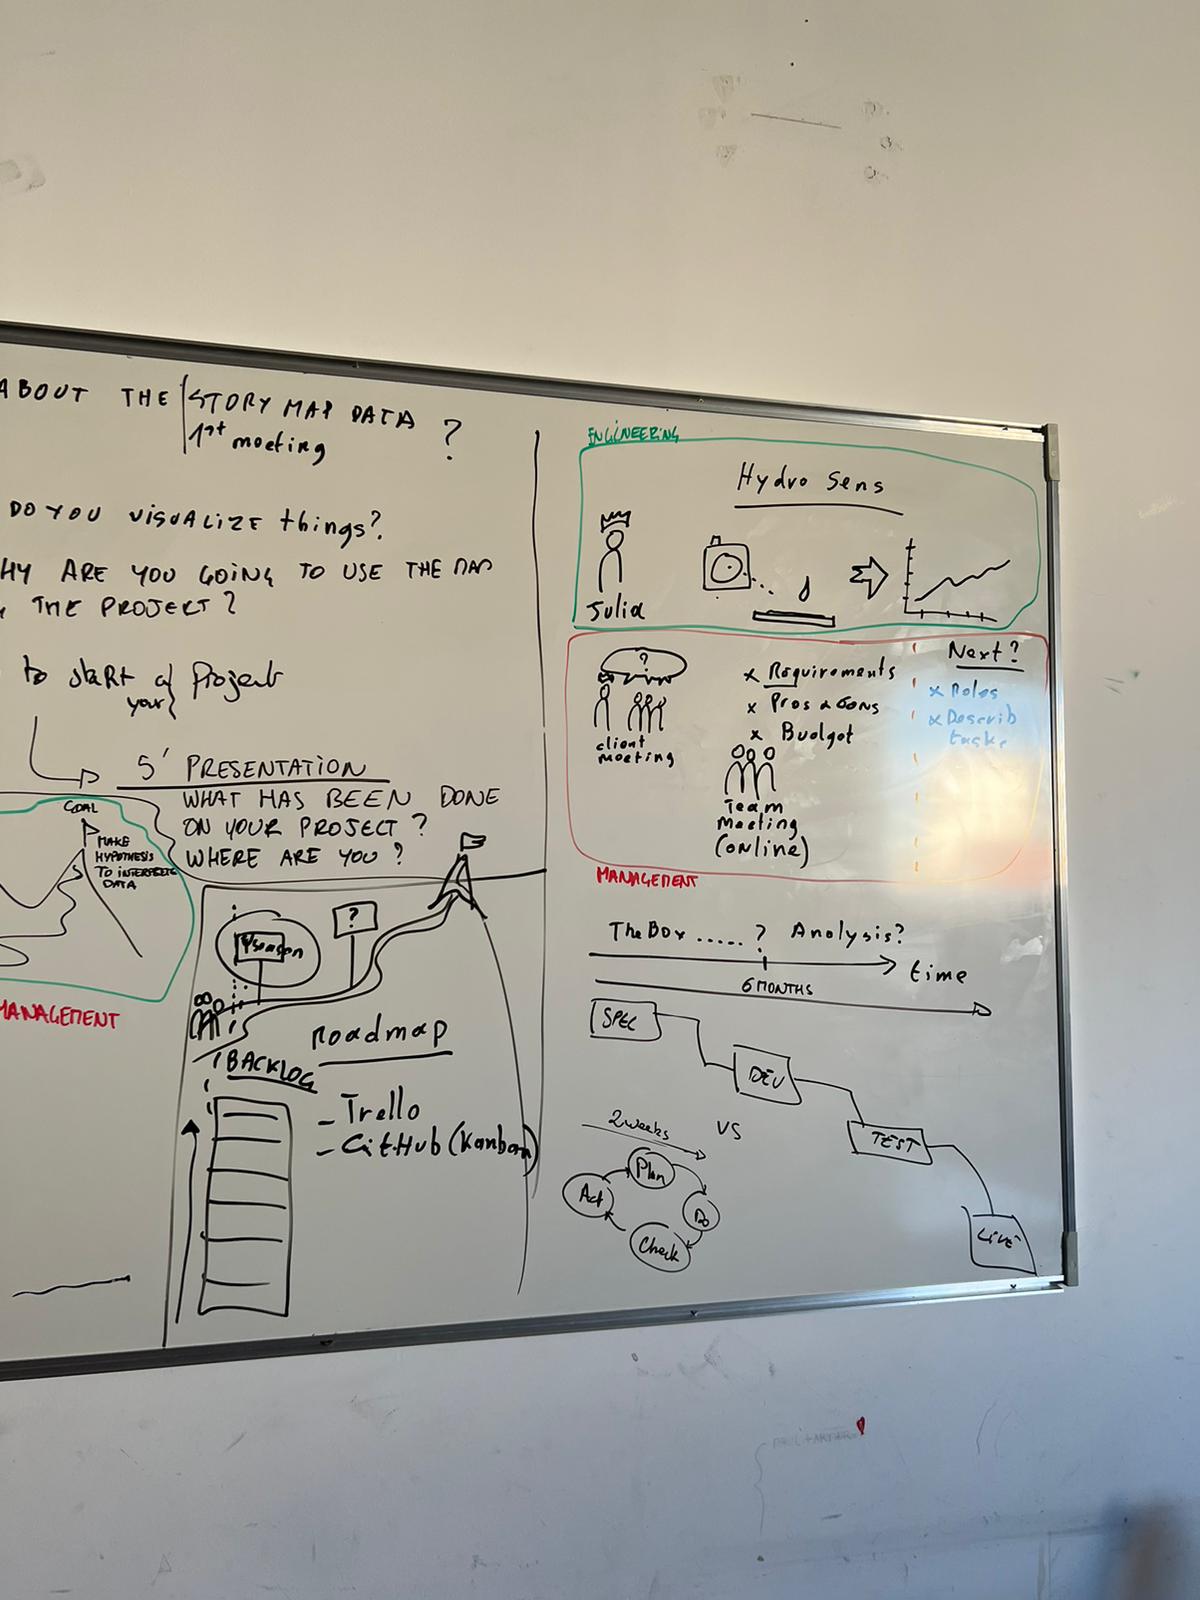 ABOUT THE STORY MAP DATA ?
1st meeting
DO YOU VISUALIZE things?
HY ARE YOU GOING TO USE THE MAP
THE PROJECT?
to start a project
your
5' PRESENTATION
WHAT HAS BEEN DONE
ON YOUR PROJECT?
WHERE ARE YOU?
GOAL
MAKE
HYPOTHESIS
TO INTERPRET
DATA
MANAGEMENT
?
Roadmap
BACKLOG
- Trello
- GitHub (Kanban)
ENGINEERING
Hydro Sens
Julia
?
client
meeting
x Requirements
x Pros & Cons
x Budget
Team
Meeting
(online)
Next?
x Roles
x Describ
tasks
MANAGEMENT
The Box ..... ? Analysis?
time
6 MONTHS
SPEC
DEV
TEST
LIVE
VS
2 weeks
Plan
Do
Check
Act